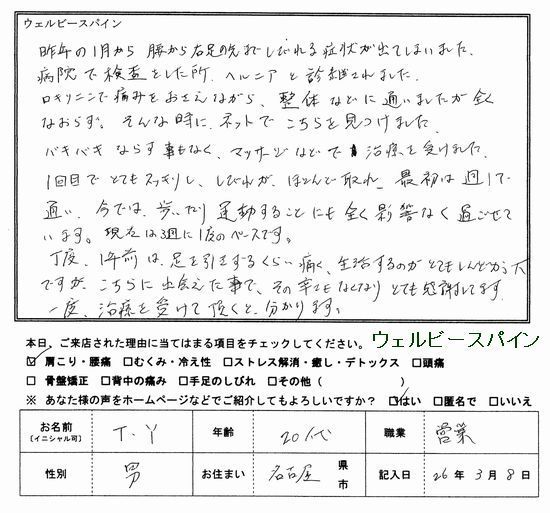 ウェルビースパイン
昨年の1月から 腰から右足の先までしびれる症状が出てしまいました。
病院で検査をした所、ヘルニアと診断されました。
ロキソニンで痛みをおさえながら、整体などに通いましたが全く
なおらず。そんな時に、ネットでこちらを見つけました。
バキバキならす事もなく、マッサージなどで治療を受けました。
1回目でとてもスッキリし、しびれが、ほとんど取れ、最初は週1で
通い、今では、歩いたり運動することにも全く影響なく過ごせて
います。現在は3週に1度のペースです。
丁度、1年前は、足を引きずるくらい痛く、生活するのがとてもしんどかった
ですが、こちらに出会えた事で、その辛さもなくなりとても感謝してます。
一度、治療を受けて頂くと、分かります。
本日、ご来店された理由に当てはまる項目をチェックしてください。
ウェルビースパイン
☑肩こり・腰痛 □むくみ・冷え性 □ストレス解消・癒し・デトックス □頭痛
□骨盤矯正 □背中の痛み □手足のしびれ □その他( )
※ あなた様の声をホームページなどでご紹介してもよろしいですか? ☑はい □匿名で □いいえ
お名前 (イニシャル可) T.Y 年齢 20代 職業 営業
性別 男 お住まい 名古屋 県 市 記入日 26年 3月 8日